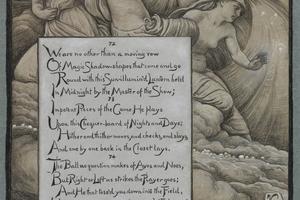 72
We are no other than a moving row
Of Magic Shadow-shapes that come and go
Round with this Sun-illumin'd Lantern held
In Midnight by the Master of the Show;
73
Impotent Pieces of the Game He plays
Upon this Chequer-board of Nights and Days;
Hither and thither moves, and checks, and slays,
And one by one back in the Closet lays.
74
The Ball no question makes of Ayes and Noes,
But Right or Left as strikes the Player goes;
And He that toss'd you down into the Field,